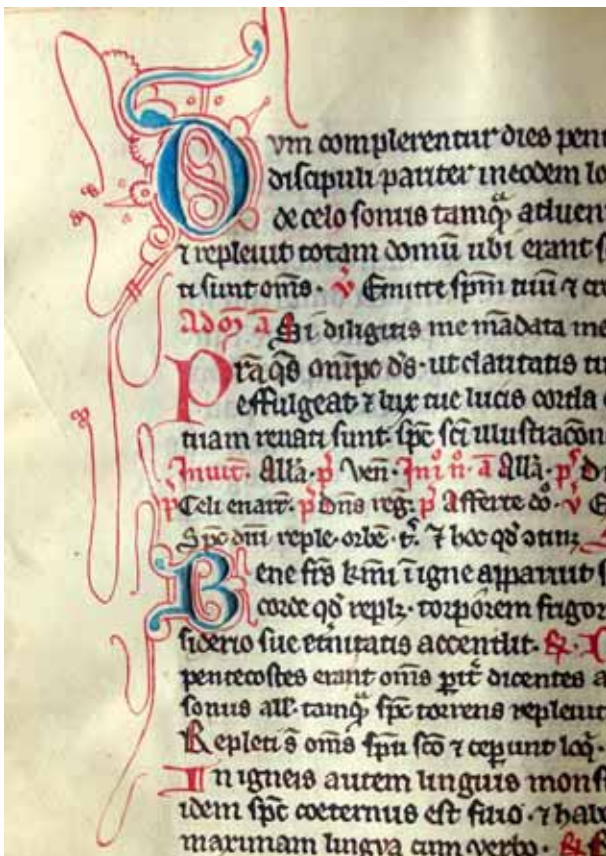 Dvm complerentur dies pen
discipuli pariter in eodem lo
de celo sonus tamq̃ aduen
⁊ repleuit totam domũ ubi erant s
ti sunt om̃s · v̊ Emitte sp̃m tuũ ⁊ cr
Ad oꝫ ã Si diligitis me mãdata me
Pr̃a q̃s om̃ipo d̃s · ut claritatis tu
effulgeat ⁊ lux tue lucis corda
tuam renati sunt · sp̃c sc̃i illustracõn
Inuit̃ · All̃a · p̃ Ven̄ · In · i · n̊ · ã All̃a · p̃s D
p̃s Celi enarr̄ · p̃s Dñs reg̃ · p̃s Afferte dõ · v̊ E
Sp̃c dñi reple · orbẽ · t̃r · ⁊ hoc qd̃ ↄtinꝫ
Bene fr̃s km̃i ĩ igne apparuit s
corde qd̃ replꝫ · torporem frigor
siderio sue et̃nitatis accendit · ℞ · I
pentecostes erant om̃s pit̃ dicentes a
sonus all̃ · tamq̃ sp̃c torrens repleuit
Repleti s̃ om̃s sp̃u sc̃o ⁊ ceperunt loq̃ ·
In igneis autem linguis mons
idem sp̃c coeternus est filio · ⁊ hab
maximam lingva cum verbo · ℞